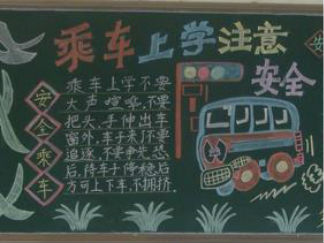 乘车上学注意
安全
安全乘车
乘车上学不要
大声喧哗,不要
把头、手伸出车
窗外,车子来了不要
追逐,不要争先恐
后,待车子停稳后
方可上下车,不拥挤.
安